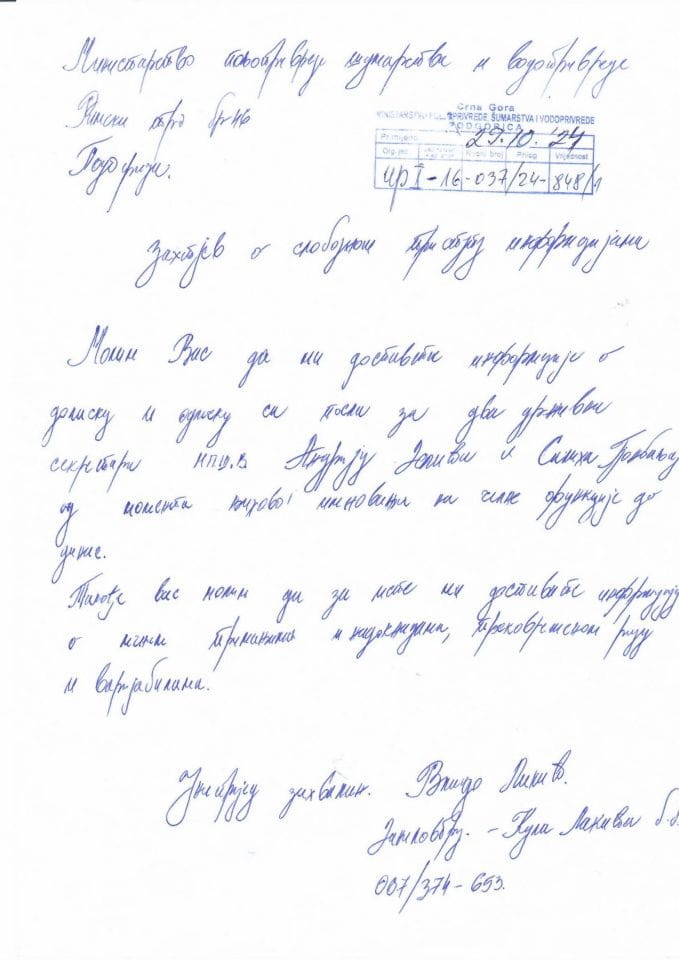 Министарство пољопривреде шумарства и водопривреде
Римски трг бр 46
Подгорица.
Crna Gora
MINISTARSTVO POLJOPRIVREDE, ŠUMARSTVA I VODOPRIVREDE
PODGORICA
Primljeno 29.10.'24
Org. jed. Redni broj Prilog Vrijednost
UPI-16-037/24-848/1
Захтјев о слободном приступу информацијама
Молим Вас да ми доставите информације о
доласку и одласку са посла за два државна
секретара МПШВ Андрију и
од момента њиховог именовања на челне функције до
данас.
Такође вас молим да за исте ми доставите информацију
о личним примањима и надокнадама, прековременом раду
и варијабилима.
Унапријед захвалан. Владо
007/374-653.